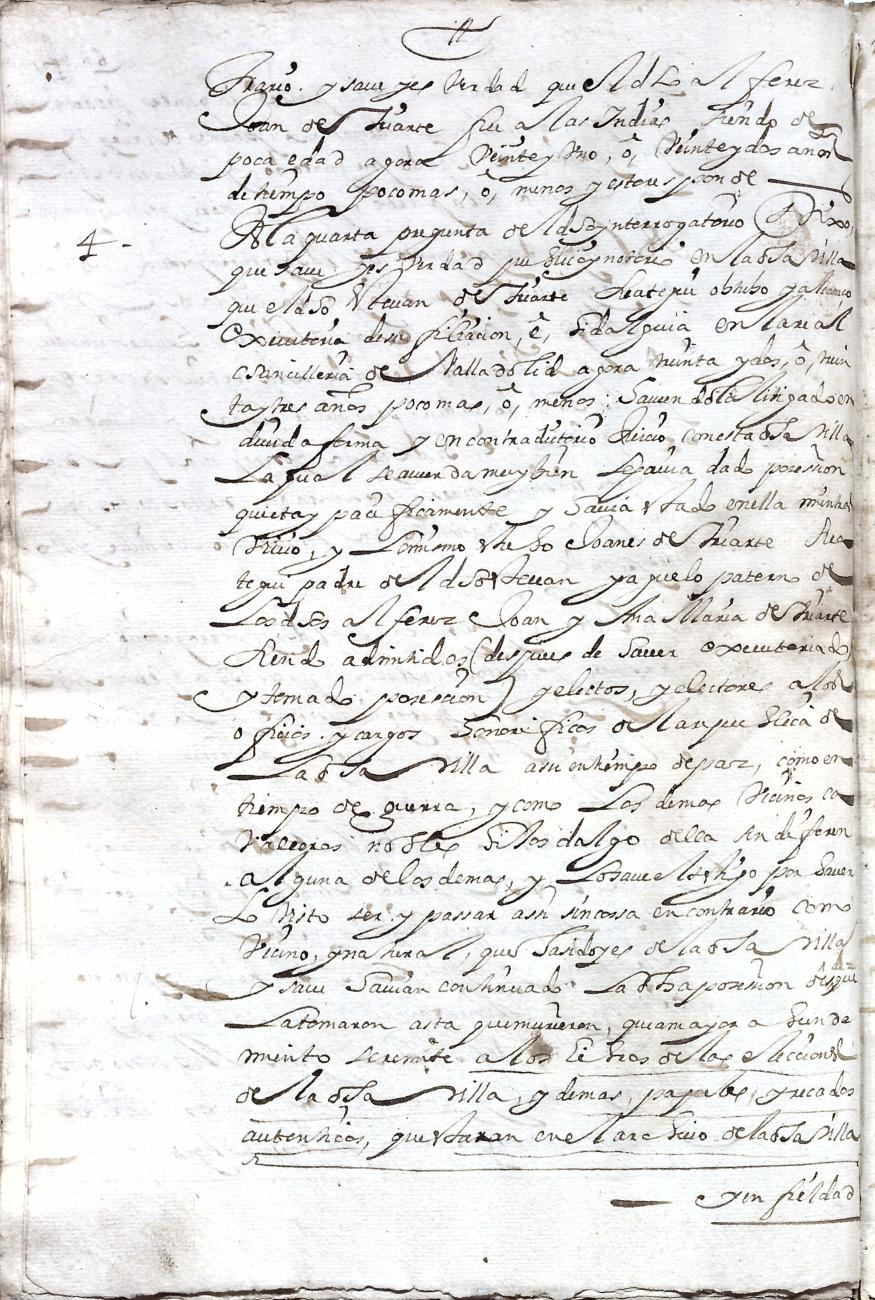 trario. y save y es Verdad que el dho alferez
Joan de Yriarte fue a las Indias siendo de
poca edad agora Veinte y Uno, o, Veinte y dos años
de tiempo poco mas, o, menos y esto responde
4 - A la quarta pregunta del dho ynterrogatorio Dixo,
que save y es Verdad publico y notorio en la dha Villa
que el dho Estevan de Yriarte obtubo y alcanço
executoria de su filiacion, e, hidalguia en la real
chancilleria de Valladolid agora treinta y dos, o, trein
ta y tres años poco mas, o, menos; haviendola litigado en
devida forma y en contradictorio Juicio con esta dha Villa
La qual se acuerda muy bien le havia dado posesion
quieta y pacificamente y havia estado en ella mientras
Vivio, y Lo mismo el dho Joanes de Yriarte
padre del dho Estevan y aguelo paterno de
Los dhos alferez Joan y Ana Maria de Yriarte
siendo admitidos (despues de haver executoriado
y tomado posesion) y electos, y electores a los
oficios. y cargos honorificos de la republica de
La dha Villa assi en tiempo de paz, como en
tiempo de guerra, y como Los demas Vecinos ca
valleros nobles hijos dalgo della sin diferen
alguna de los demas, y Lo save el testigo por haver
Lo Visto ser y passar assi sin cossa en contrario como
Vecino, y natural, que ha sido y es de la dha Villa
y save havian continuado La dha posesion desde que
La tomaron asta que murieron, qui a mayor abunda
miento se remite a los libros de las elecciones
de la dha Villa, y demas, papeles, y recados
autenticos, que estaran en el archivo de la dha Villa
y en fieldad